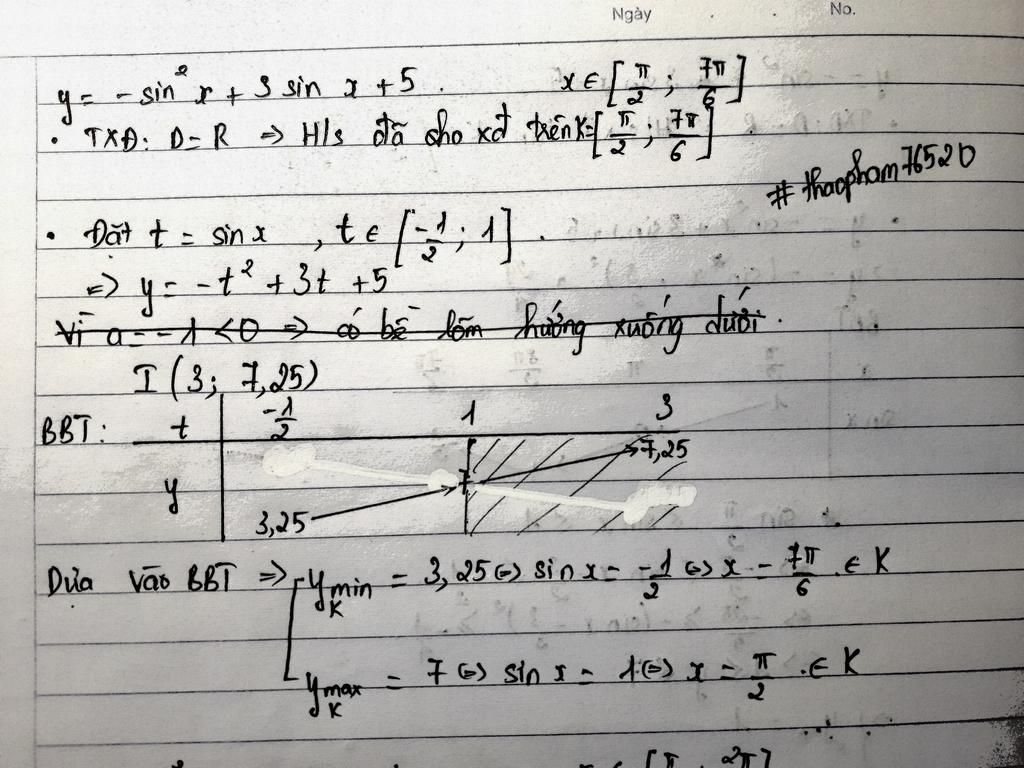 Ngày No.
y = -sin²x + 3 sin x + 5. x ∈ [π/2; 7π/6]
• TXĐ: D = R => H/s đã cho xđ trên K=[π/2; 7π/6]
#thaopham76520
• Đặt t = sin x, t ∈ [-1/2; 1].
=> y = -t² + 3t + 5
Vì a = -1 < 0 => có bề lõm hướng xuống dưới.
I (3; 7,25)
BBT: t -1/2 1 3
7,25
y 7
3,25
Dưa vào BBT => y min K = 3,25 <=> sin x = -1/2 <=> x = 7π/6 ∈ K
y max K = 7 <=> sin x = 1 <=> x = π/2 ∈ K